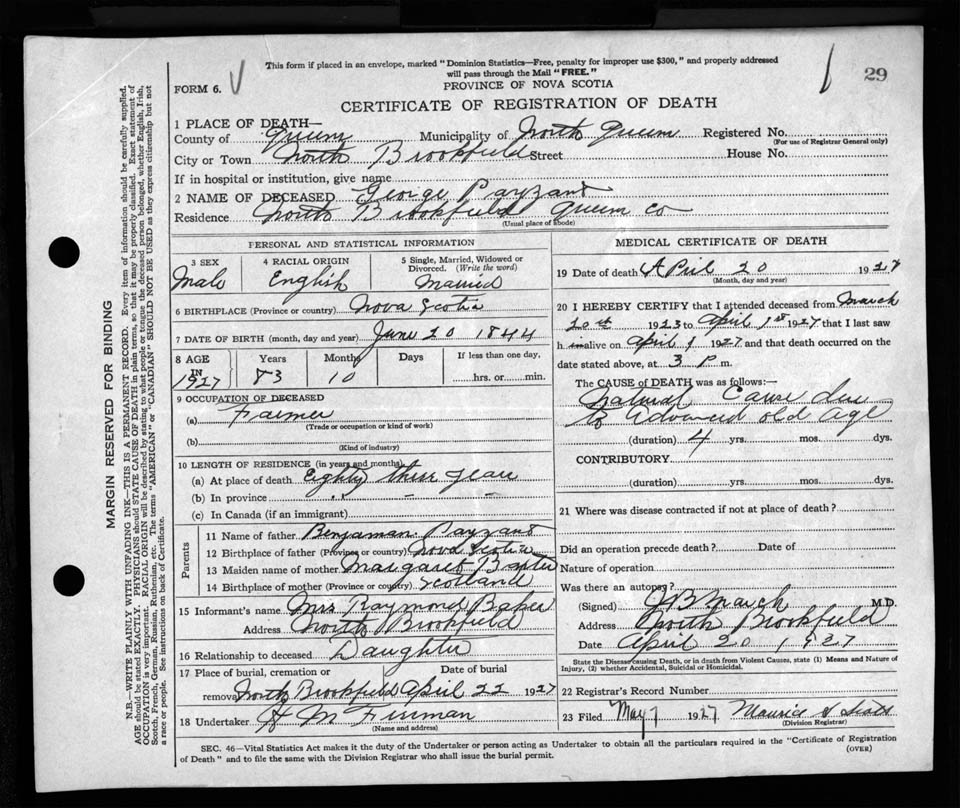 This form if placed in an envelope, marked "Dominion Statistics—Free, penalty for improper use $300," and properly addressed
will pass through the Mail "FREE."
29
FORM 6.
PROVINCE OF NOVA SCOTIA
CERTIFICATE OF REGISTRATION OF DEATH
1 PLACE OF DEATH—
County of Queens Municipality of North Queens Registered No.
(For use of Registrar General only)
City or Town North Brookfield Street House No.
If in hospital or institution, give name
2 NAME OF DECEASED George Payzant
Residence North Brookfield Queens Co
(Usual place of abode)
PERSONAL AND STATISTICAL INFORMATION
3 SEX
Male
4 RACIAL ORIGIN
English
5 Single, Married, Widowed or
Divorced. (Write the word)
Married
6 BIRTHPLACE (Province or country) Nova Scotia
7 DATE OF BIRTH (month, day and year) June 20 1844
8 AGE Years Months Days If less than one day,
IN 1927 83 10 hrs. or min.
9 OCCUPATION OF DECEASED
(a) Farmer
(Trade or occupation or kind of work)
(b)
(Kind of industry)
10 LENGTH OF RESIDENCE (in years and months)
(a) At place of death Eighty three years
(b) In province " – –
(c) In Canada (if an immigrant)
Parents
11 Name of father Benjaman Payzant
12 Birthplace of father (Province or country) Nova Scotia
13 Maiden name of mother Margaret
14 Birthplace of mother (Province or country) Scotland
15 Informant's name Mrs Raymond Baker
Address North Brookfield
16 Relationship to deceased Daughter
17 Place of burial, cremation or Date of burial
removal North Brookfield April 22 1927
18 Undertaker H M
(Name and address)
MEDICAL CERTIFICATE OF DEATH
19 Date of death April 20 1927
(Month, day and year)
20 I HEREBY CERTIFY that I attended deceased from March
20th 1923 to April 1st 1927 that I last saw
h im alive on April 1 1927 and that death occurred on the
date stated above, at 3 P m.
The CAUSE of DEATH was as follows:—
Natural Cause due
to Advanced old Age
(duration) 4 yrs. mos. dys.
CONTRIBUTORY.
(duration) yrs. mos. dys.
21 Where was disease contracted if not at place of death?
Did an operation precede death? Date of
Nature of operation
Was there an autopsy?
(Signed) March M.D.
Address North Brookfield
Date April 20 1927
State the Disease causing Death, or in death from Violent Causes, state (1) Means and Nature of
Injury, (2) whether Accidental, Suicidal or Homicidal.
22 Registrar's Record Number
23 Filed May 7 1927 Maurice
(Division Registrar)
SEC. 46—Vital Statistics Act makes it the duty of the Undertaker or person acting as Undertaker to obtain all the particulars required in the "Certificate of Registration
of Death" and to file the same with the Division Registrar who shall issue the burial permit.
(OVER)
MARGIN RESERVED FOR BINDING
N.B.—WRITE PLAINLY WITH UNFADING INK—THIS IS A PERMANENT RECORD. Every item of information should be carefully supplied.
AGE should be stated EXACTLY. PHYSICIANS should STATE CAUSE OF DEATH in plain terms, so that it may be properly classified. Exact statement of
OCCUPATION is very important. RACIAL ORIGIN will be described by stating to what people or tongue the deceased person belonged, whether English, Irish,
Scotch, French, German, Russian, Ruthenian, etc. The terms "AMERICAN" or "CANADIAN" SHOULD NOT BE USED as they express citizenship but not
a race or people. See instructions on back of Certificate.